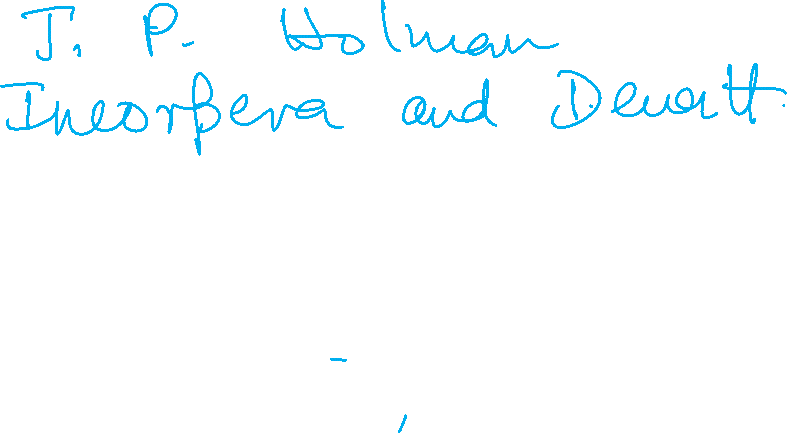 J. P. Holman
Incorpera and Dewatt.